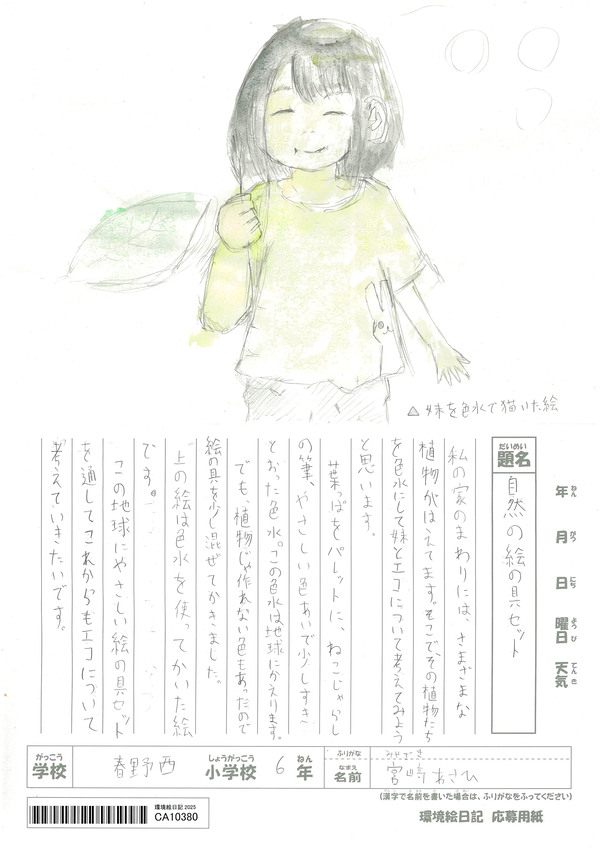 △妹を色水で描いた絵
だいめい
題名
自然の絵の具セット
年 ねん
月 がつ
日 にち
曜日 ようび
天気 てんき
私の家のまわりには、さまざまな
植物がはえてます。そこで、その植物たち
を色水にして妹とエコについて考えてみよう
と思います。
葉っぱをパレットに、ねこじゃらし
の筆、やさしい色あいで少しすき
とおった色水。この色水は地球にかえります。
でも、植物じゃ作れない色もあったので
絵の具を少し混ぜてかきました。
上の絵は色水を使ってかいた絵
です。
この地球にやさしい絵の具セット
を通してこれからもエコについて
考えていきたいです。
がっこう
学校
春野西
しょうがっこう
小学校
6
ねん
年
ふりがな
みやざき
なまえ
名前
宮崎あさひ
(漢字で名前を書いた場合は、ふりがなをふってください)
環境絵日記 2025
CA10380
環境絵日記 応募用紙